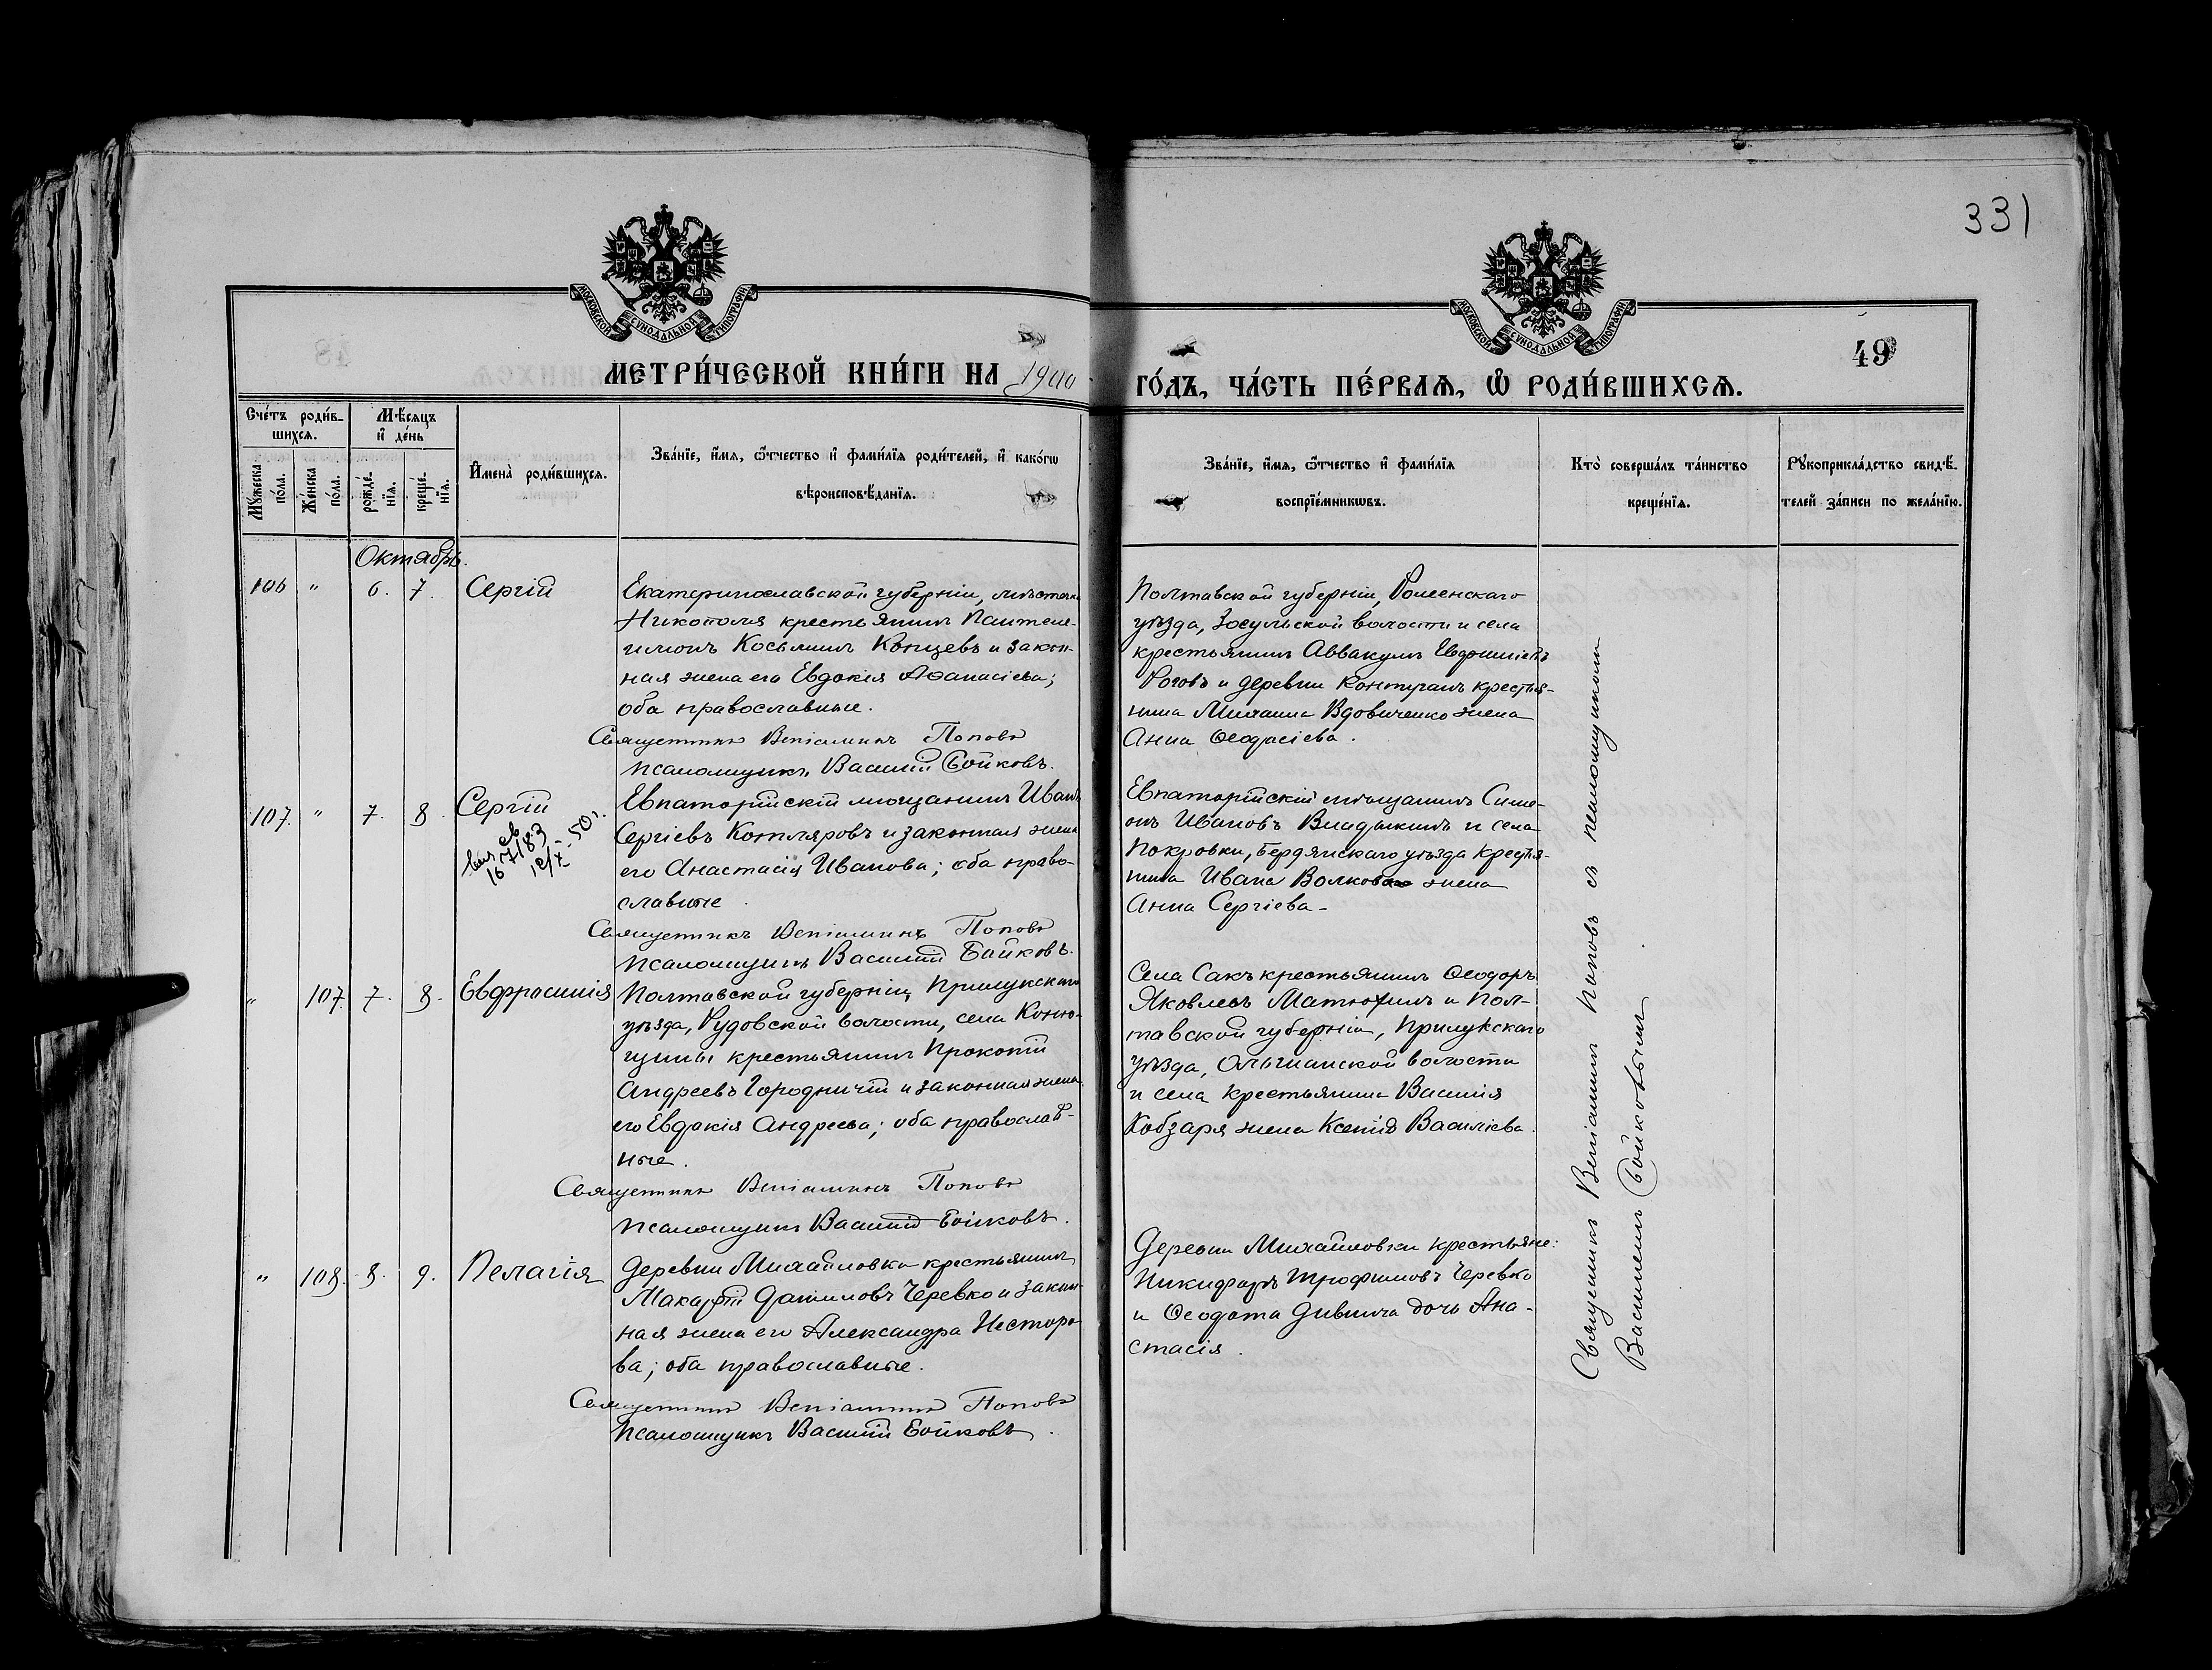 331
МОСКОВСКОЙ СѴНОДАЛЬНОЙ ТИПОГРАФІИ
МОСКОВСКОЙ СѴНОДАЛЬНОЙ ТИПОГРАФІИ
49
МЕТРИ́ЧЕСКОЙ КНИ́ГИ НА 1900 ГО́ДЪ, ЧА́СТЬ ПЕ́РВАѦ, Ѡ РОДИ́ВШИХСѦ.
Сче́тъ роди́в-
шихсѧ.
Мѣ́сѧцъ
и҆ де́нь
Мꙋ́жеска
по́ла.
Же́нска
по́ла.
рожде́-
нїѧ.
креще́-
нїѧ.
И҆мена̀ роди́вшихсѧ.
Зва́нїе, и҆́мѧ, ѻ҆́тчество и҆ фами́лїѧ роди́телей, и҆ како́гѡ
вѣроисповѣ́данїѧ.
Зва́нїе, и҆́мѧ, ѻ҆́тчество и҆ фами́лїѧ
воспрїе́мникѡвъ.
Кто̀ соверша́лъ та́инство
креще́нїѧ.
Рꙋкоприкла́дство свидѣ́-
телей за́писи по жела́нїю.
Октябрь.
106 " 6. 7. Сергій
Екатеринославской губерніи, мѣстечка
Никополя крестьянинъ Пантеле-
имонъ Косьминъ Концевъ и закон-
ная жена его Евдокія Аѳанасіева;
оба православные.
Священникъ Веніаминъ Поповъ
Псаломщикъ Василій Бойковъ.
Полтавской губерніи, Роменскаго
уѣзда, Засульской волости и села
крестьянинъ Аввакумъ
Роговъ и деревни Контуганъ крестья-
нина Михаила Вдовиченко жена
Анна Ѳеодосіева.
107. " 7. 8. Сергій
16 7/83
Евпаторійскій мѣщанинъ Иванъ
Сергіевъ Котляровъ и законная жена
его Анастасія Иванова; оба право-
славные.
Священникъ Веніаминъ Поповъ
Псаломщикъ Василій Бойковъ.
Евпаторійскій мѣщанинъ Симе-
онъ Ивановъ Владыкинъ и села
Покровки, Бердянскаго уѣзда крестья-
нина Ивана Волкова жена
Анна Сергіева.
" 107. 7. 8. Евфросинія
Полтавской губерніи, Прилукскаго
уѣзда, Рудовской волости, села
крестьянинъ Прокопій
Андреевъ Городничій и законная жена
его Евдокія Андреева; оба православ-
ные.
Священникъ Веніаминъ Поповъ
Псаломщикъ Василій Бойковъ.
Села Сакъ крестьянинъ Ѳеодоръ
Яковлевъ Матюхинъ и Пол-
тавской губерніи, Прилукскаго
уѣзда, Ольшанской волости
и села крестьянина Василія
Кобзаря жена Ксенія Василіева.
" 108. 8. 9. Пелагія
Деревни Михайловки крестьянинъ
Макарій Даниловъ Черевко и закон-
ная жена его Александра Несторо-
ва; оба православные.
Священникъ Веніаминъ Поповъ
Псаломщикъ Василій Бойковъ.
Деревни Михайловки крестьяне:
Никифоръ Трофимовъ Черевко
и Ѳеодота дочь Ана-
стасія.
Священникъ Веніаминъ Поповъ съ псаломщикомъ
Василіемъ Бойковымъ.